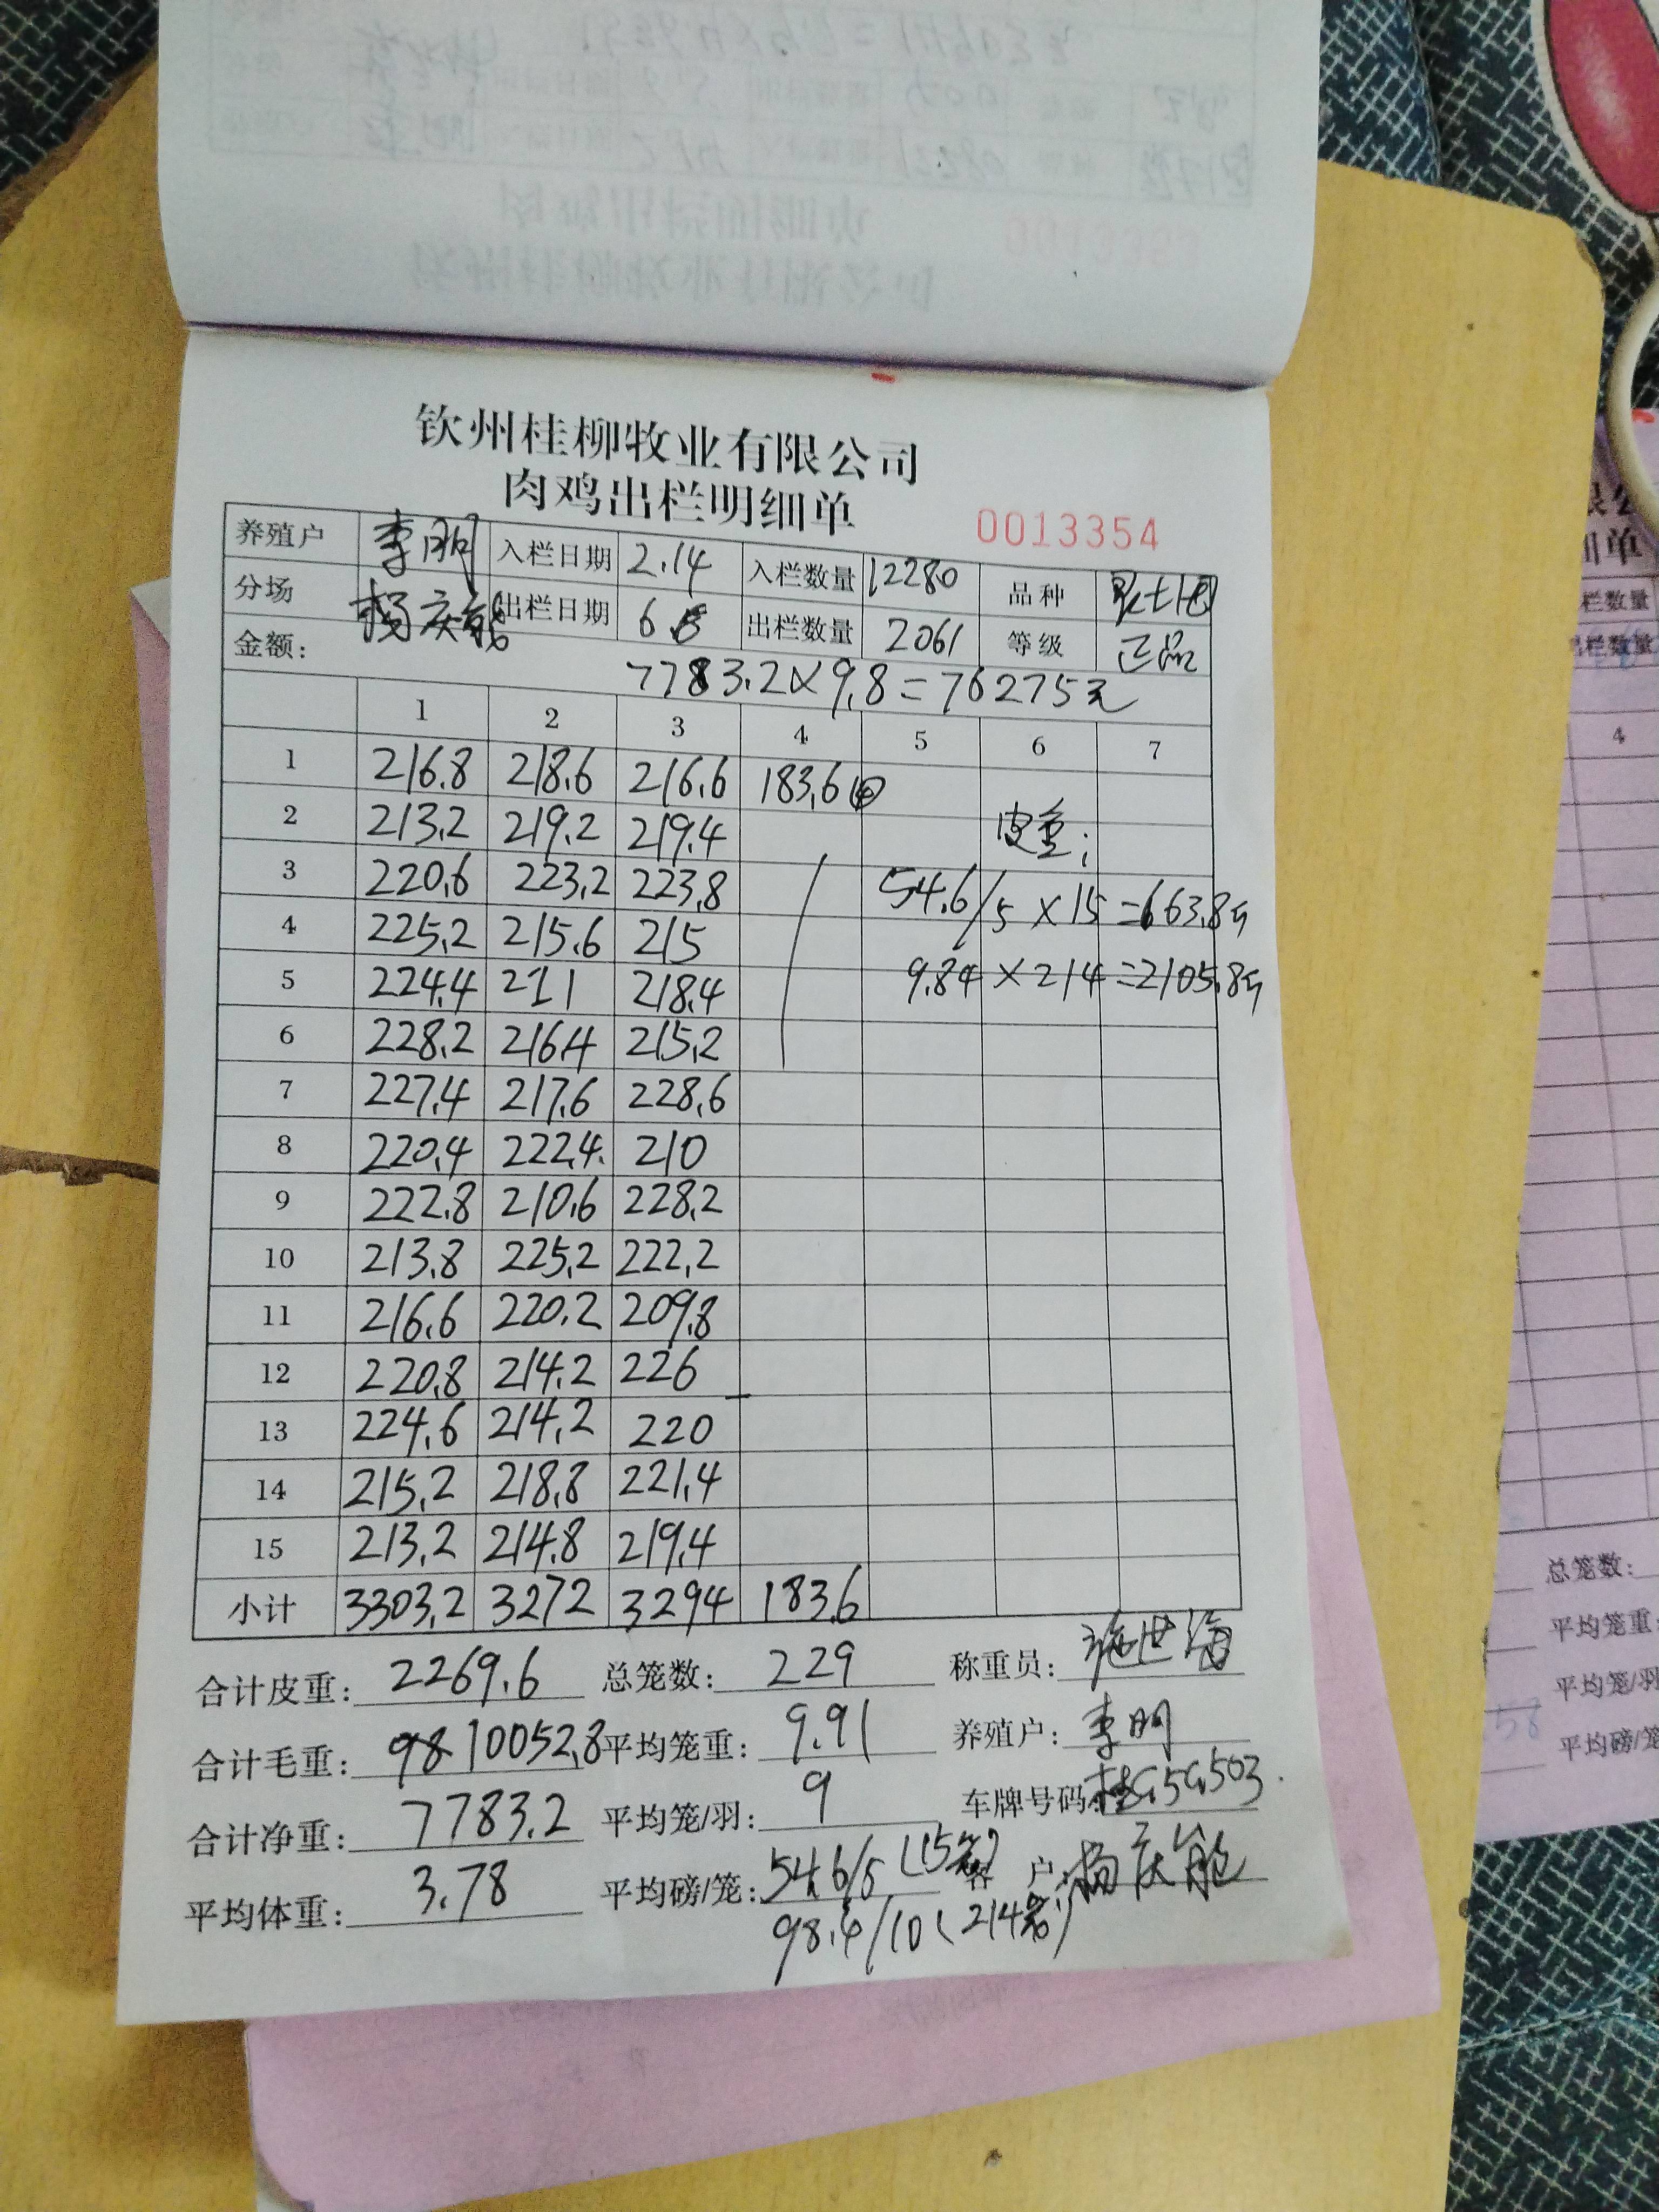 钦州桂柳牧业有限公司
肉鸡出栏明细单
0013354
养殖户 李明 入栏日期 2.14 入栏数量 12280 品种
分场 杨庆能 出栏日期 6 出栏数量 2061 等级 正品
金额: 7783.2×9.8=76275元
1 2 3 4 5 6 7
1 216.8 218.6 216.6 183.6
2 213.2 219.2 219.4 皮重:
3 220.6 223.2 223.8 54.6/5×15=663.8斤
4 225.2 215.6 215
5 224.4 211 218.4 9.84×214=2105.8斤
6 228.2 216.4 215.2
7 227.4 217.6 228.6
8 220.4 222.4 210
9 222.8 210.6 228.2
10 213.8 225.2 222.2
11 216.6 220.2 209.8
12 220.8 214.2 226
13 224.6 214.2 220
14 215.2 218.8 221.4
15 213.2 214.8 219.4
小计 3303.2 3272 3294 183.6
合计皮重: 2269.6 总笼数: 229 称重员: 施世海
合计毛重: 10052.8 平均笼重: 9.91 养殖户: 李明
合计净重: 7783.2 平均笼/羽: 9 车牌号码:
平均体重: 3.78 平均磅/笼: 54.6/5(15笼) 客户: 杨庆能
98.4/10(214笼)
栏数量
出栏数量
4
总笼数:
平均笼重:
平均笼/羽
平均磅/笼